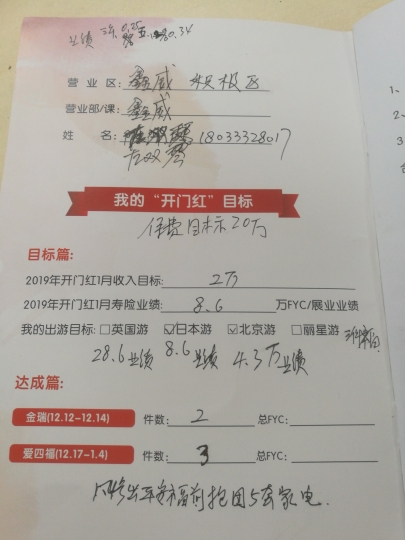 业绩 三年 0.25 五 0.34
营业区: 鑫威 积极区
营业部/课: 鑫威
姓 名: 18033328017
左双琴
我的“开门红”目标
保费目标20万
目标篇:
2019年开门红1月收入目标: 2万
2019年开门红1月寿险业绩: 8.6 万FYC/展业业绩
我的出游目标: □英国游 ☑日本游 ☑北京游 □丽星游
28.6业绩 8.6业绩 4.3万业绩
达成篇:
金瑞(12.12-12.14) 件数: 2 总FYC:
爱四福(12.17-1.4) 件数: 3 总FYC:
福前抱回5套家电.
1、
2、